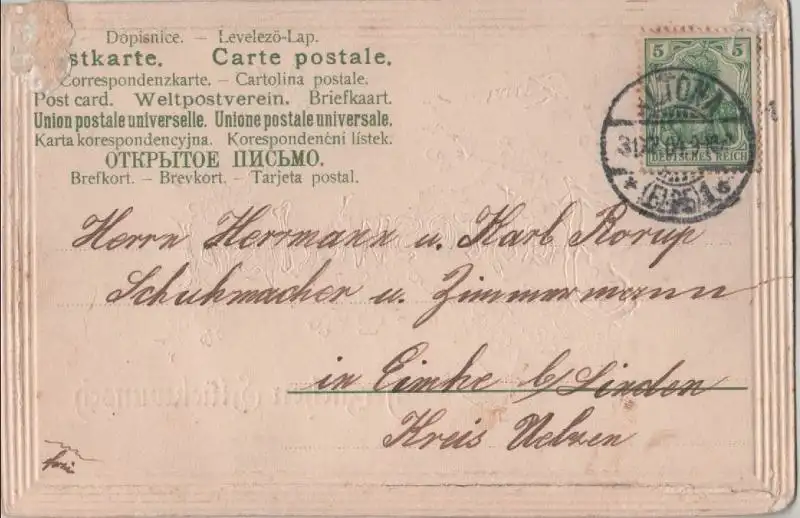 Dopisnice. – Levelezö-Lap.
stkarte. Carte postale.
Correspondenzkarte. – Cartolina postale.
Post card. Weltpostverein. Briefkaart.
Union postale universelle. Unione postale universale.
Karta korespondencyjna. Korespondenční lístek.
ОТКРЫТОЕ ПИСЬМО.
Brefkort. – Brevkort. – Tarjeta postal.
5 5
DEUTSCHES REICH
ALTONA
(ELBE) 1
Herrn Herrmann u. Karl Rorup
Schuhmacher u. Zimmermann
in Eimke b/ Linden
Kreis Uelzen